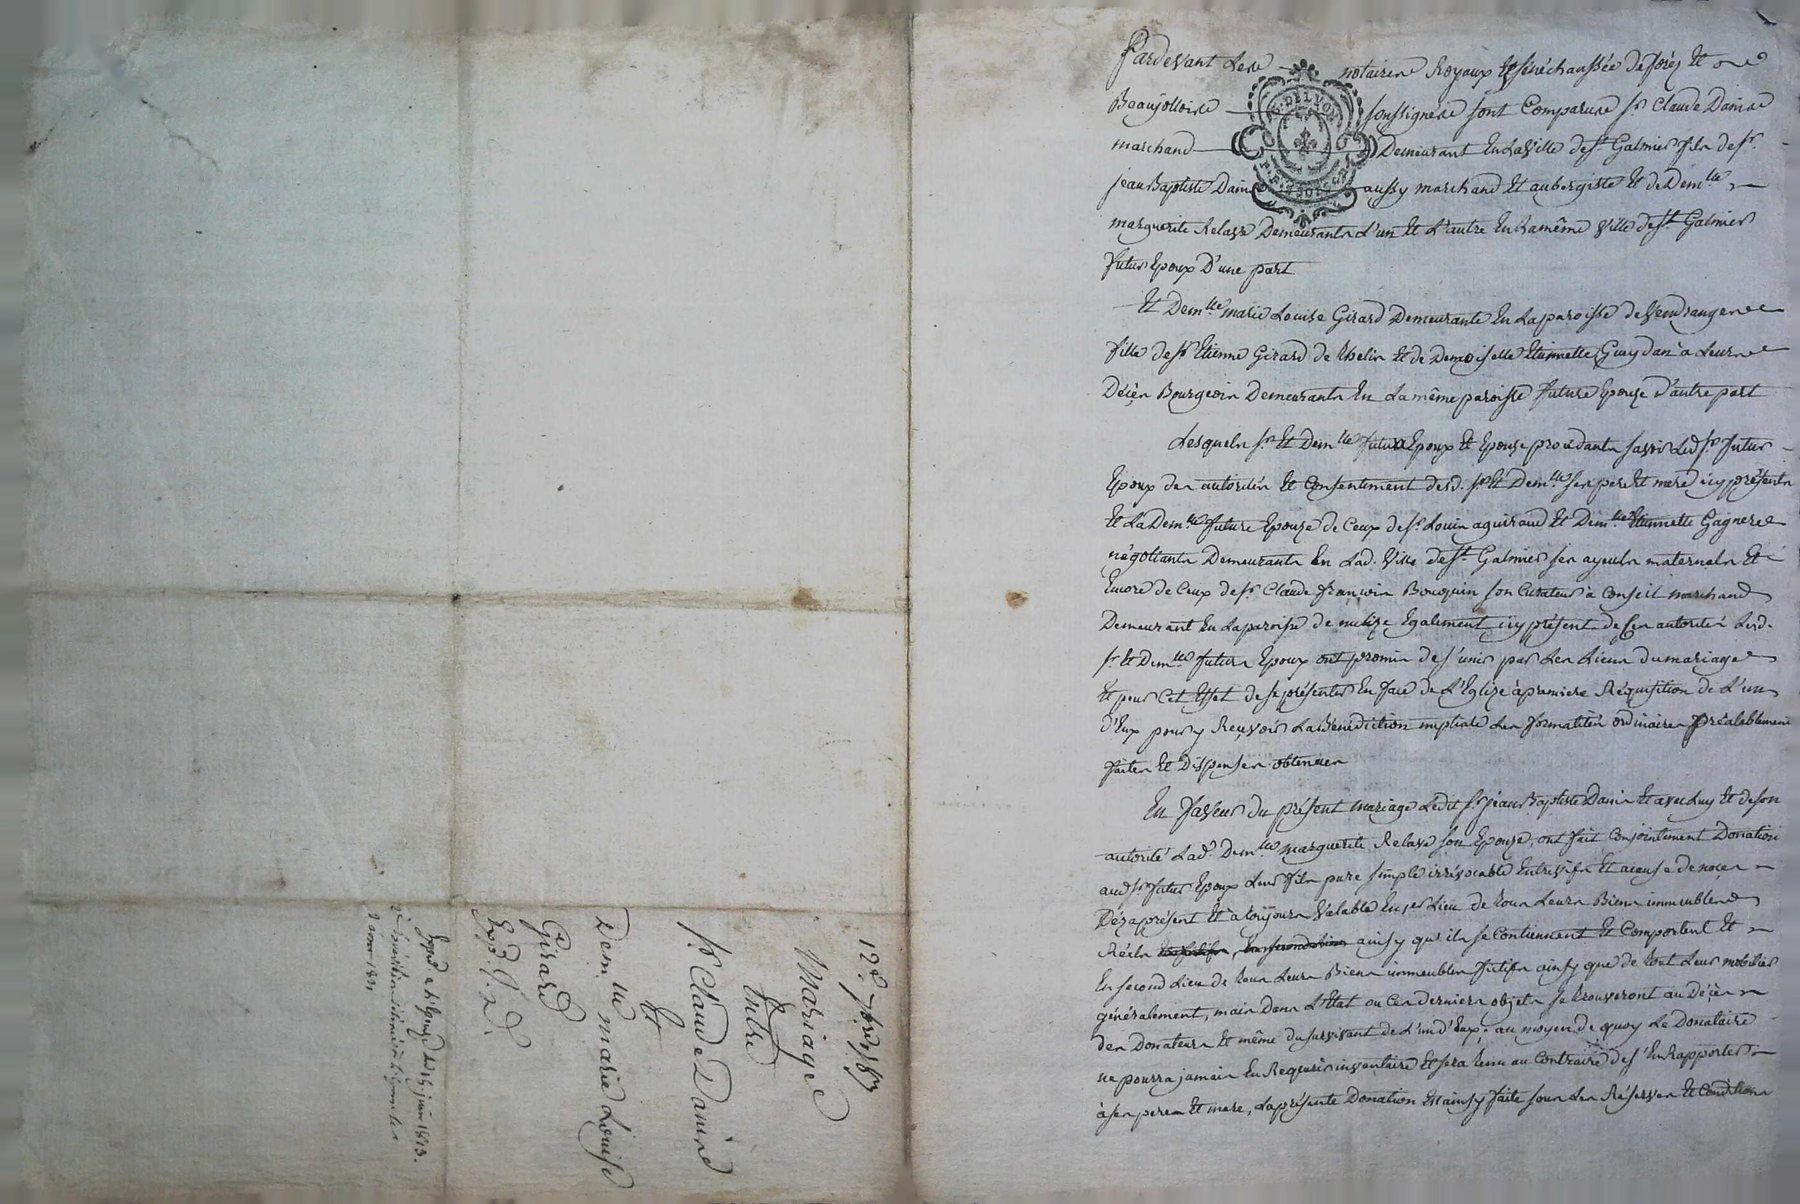 Pardevant Les notaires Royaux En sénéchaussée de forez Et
Beaujollois soussignés sont Comparus sr. Claude Damas
marchand Demeurant En La Ville de st. Galmier fils de sr.
jean Baptiste Damas aussy marchand Et aubergiste Et de Demlle
marguerite Relave Demeurants L'un Et L'autre En La même Ville de st. Galmier
futur Epoux D'une part
Et Demlle marie Louise Girard Demeurante En La paroisse de Vendranges
fille de sr. Etienne Girard de Et de Demoiselle Etiennette à Leurs
Décès Bourgeois Demeurants En La même paroisse future Epouze d'autre part
Lesquels sr. Et Demlle futurs Epoux Et Epouse procédants savoir Led. sr. futur
Epoux des autorités Et Consentiment desd. sr. Et Demlle ses pere Et mere icy présents
Et La Demlle future Epouze de Ceux de sr. Louis aguiraud Et Demlle Etiennette Gagnere
négotiants Demeurants En Lad. Ville de st. Galmier ses ayeuls maternels Et
Encore de Ceux de sr. Claude françois son Curateur à Conseil marchand
Demeurant En La paroisse de Egalement icy présent de ses autorités Lesd.
sr. Et Demlle futurs Epoux ont promis de s'unir par Les Liens du mariage
Et pour Cet Effet de se présenter En face de L'Eglize à premiere Réquisition de L'un
d'Eux pour y Reçevoir La Bénédiction nuptiale Les formalités ordinaires préalablement
faites Et Dispenses obtenues
En faveur du présent mariage Ledit sr. jean Baptiste Damas Et avec Luy Et de son
autorité Lad. Demlle marguerite Relave son Epouze, ont fait Conjointement Donation
aud. sr. futur Epoux Leur fils pure simple irrévocable Entrevifs Et acause de noces
Dèz apresent Et à toujours Valable En 1er Lieu de tous Leurs Biens immeubles
Réels ainsy qu'ils se Contiennent Et Comportent Et
En second Lieu de tous Leurs Biens immeubles fictifs ainsy que de tout Leur mobilier
généralement, mais Dans L'Etat ou Ces derniers objets se trouveront au Décès
des Donateurs Et même du survivant de L'un d'Eux; au moyen de quoy Le Donataire
ne pourra jamais En Requérir inventaire Et sera tenu au Contraire de s'En Rapporter
à ses pere Et mere, La présente Donation Est ainsy faite sous Les Réserves Et Conditions
12e. 7bre 1787
Mariage
Entre
sr. Claude Damas
Et
Demlle marie Louise
Girard
Exp.